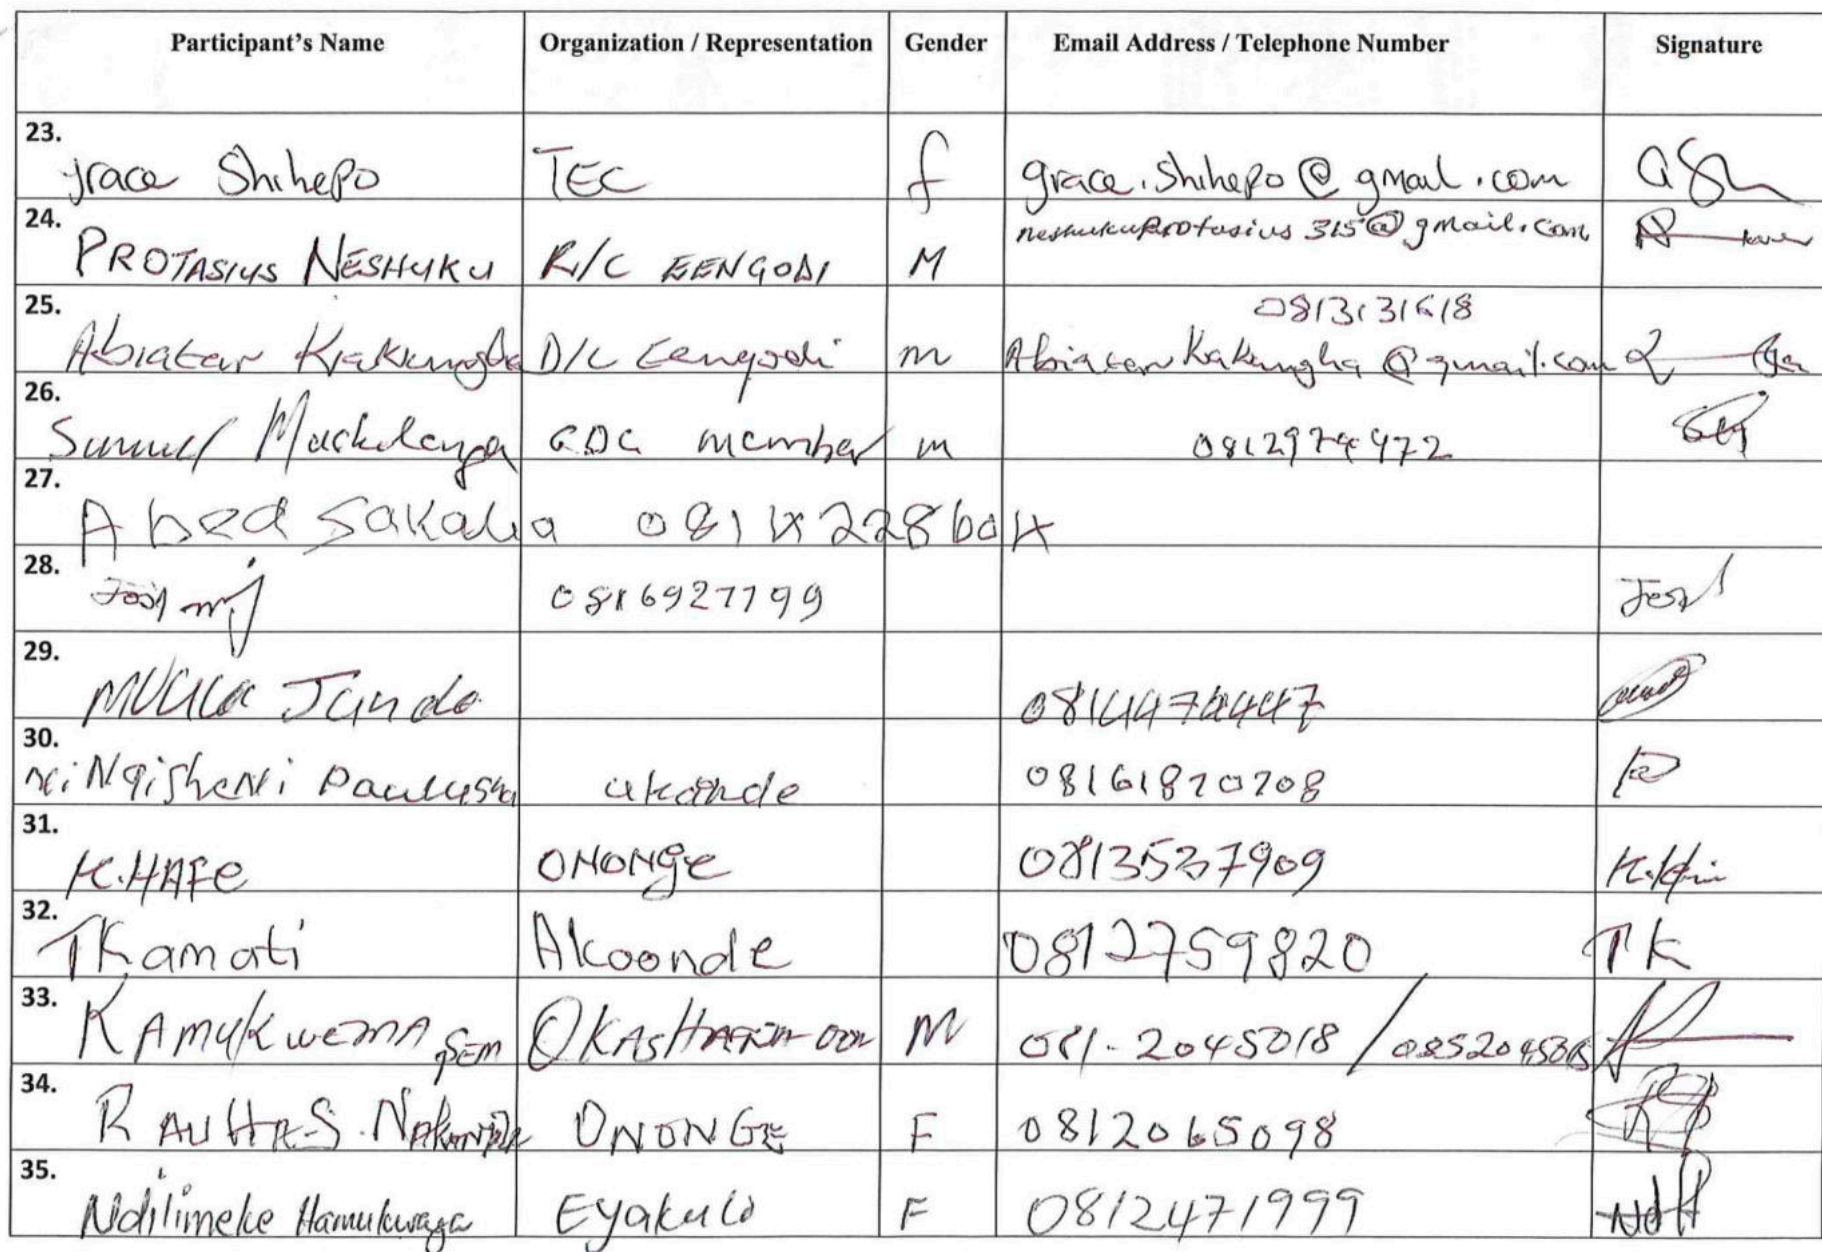 Participant's Name Organization / Representation Gender Email Address / Telephone Number Signature
23. grace Shihepo TEC f grace.Shihepo@gmail.com GSh
24. PROTASIUS NESHUKU R/C EENGODI M neshukuprotasius315@gmail.com
25. 0813131618
Abiatar Kakungha D/C Eengodi m AbiatarKakungha@gmail.com
26. CDC member m 0812974472
27. Abed Sakaha 0814228604
28. 0816927799
29. MVULA Jande 0814474447
30. Paulus ukande 08161870708
31. K.HAFE ONONGe 0813537909
32. T Kamati Akoonde 0812759820 TK
33. KAMUKWEMA SEM M 081-2045018 / 0852045018
34. RAUHA-S. ONONGE F 0812065098
35. Ndilimeke Hamukwaya Eyakulo F 0812471999 NdH